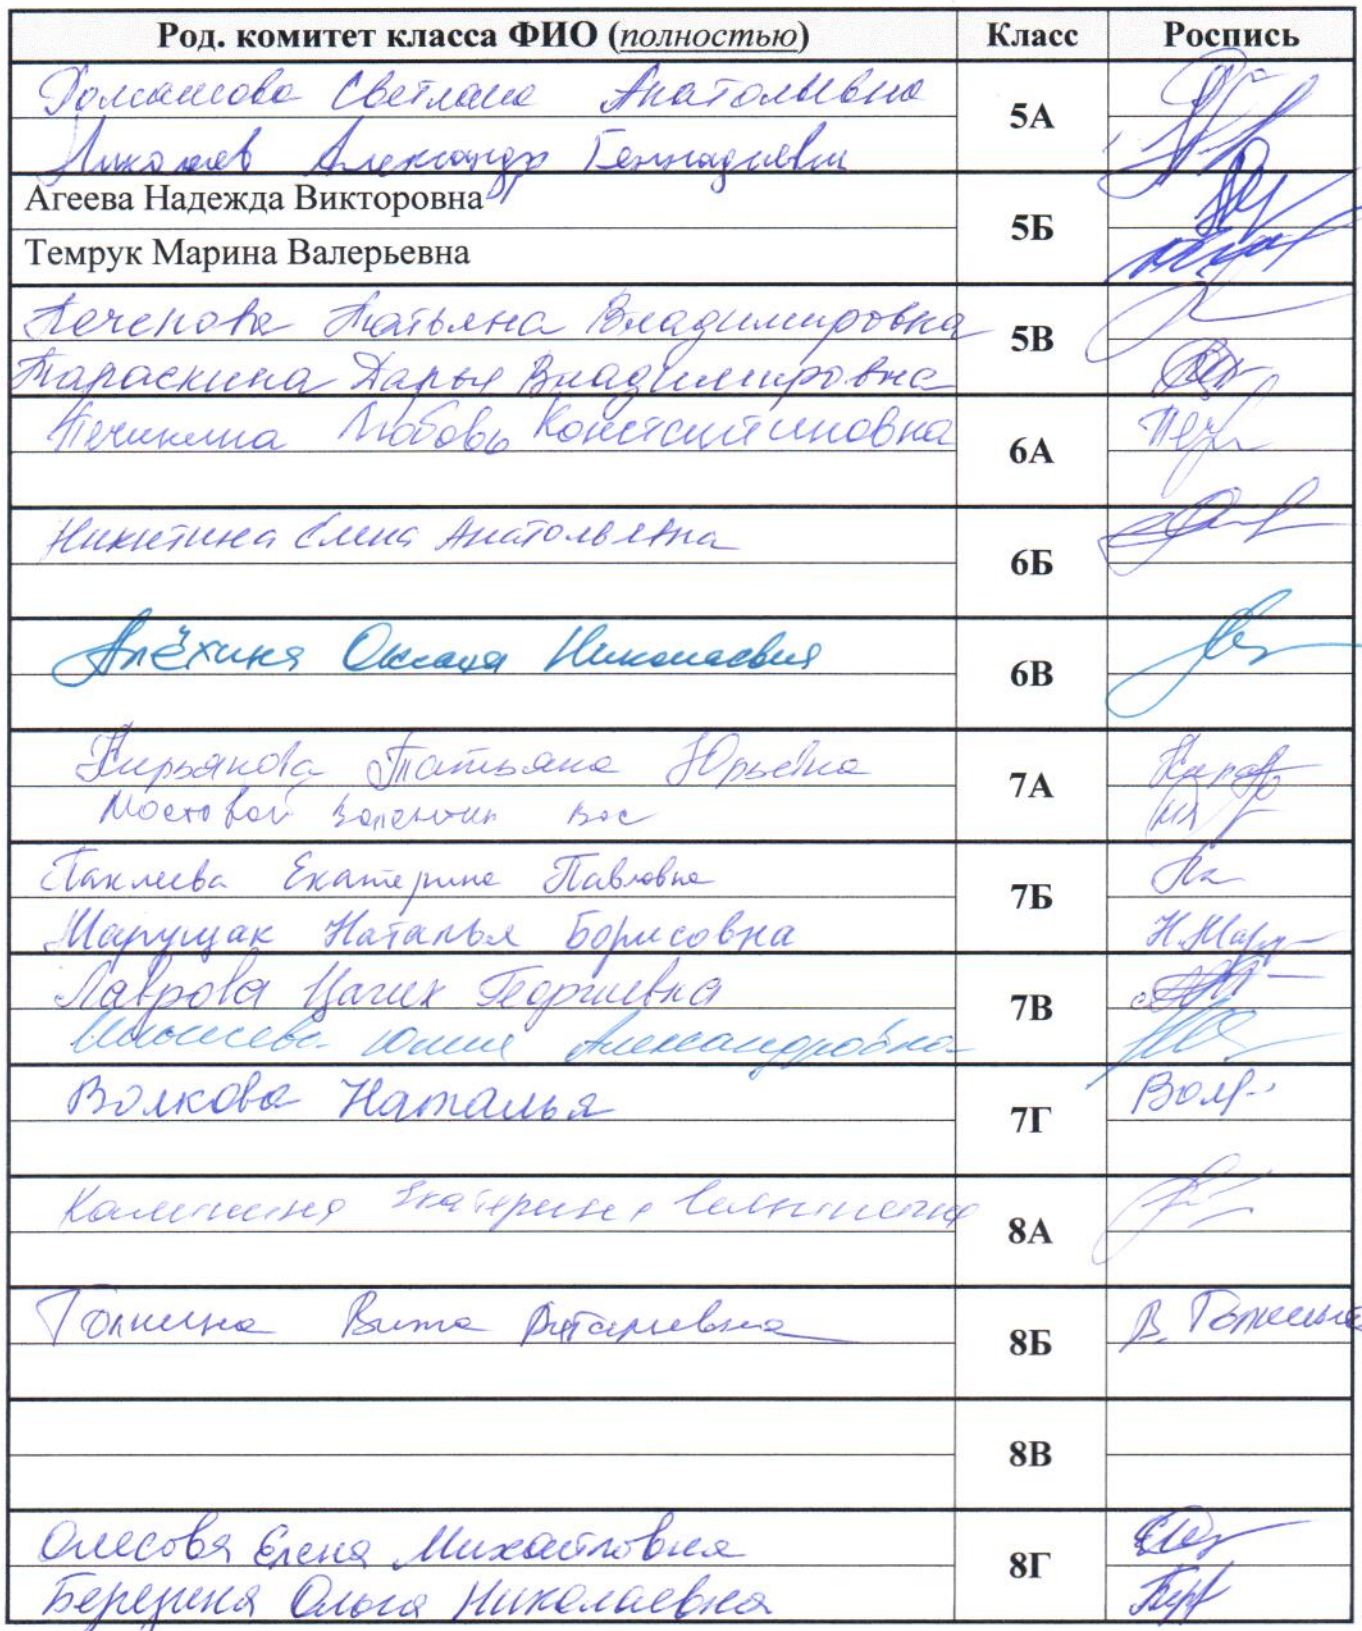 Род. комитет класса ФИО (полностью) Класс Роспись
Светлана Анатольевна
5А
Александр Геннадиевич
Агеева Надежда Викторовна
5Б
Темрук Марина Валерьевна
Татьяна Владимировна
5В
Тараскина Дарья Владимировна
Любовь Константиновна
6А
Никитина Елена Анатольевна
6Б
Алёхина Оксана Николаевна
6В
Кирьянова Татьяна Юрьевна
7А
Мостовой Валентин Вас
Екатерина Павловна
7Б
Марущак Наталья Борисовна Н.Мару
Лаврова Георгиевна
7В
Юлия Александровна
Волкова Наталья Волк
7Г
Калинина Екатерина
8А
Вита В.
8Б
8В
Олесова Елена Михайловна
8Г
Ольга Николаевна